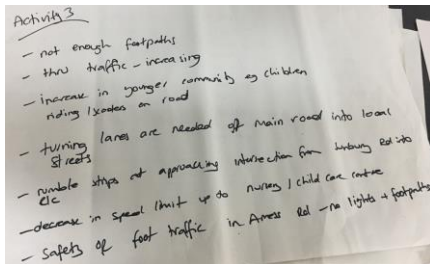 Activity 3
- not enough footpaths
- thru traffic - increasing
- increase in younger community eg children
riding / scooters on road
- turning lanes are needed of main road into local
streets
- rumble strips at approaching intersection from Rd into
- decrease in speed limit up to nursery / child care centre
- safety of foot traffic in Amess Rd - no lights + footpaths